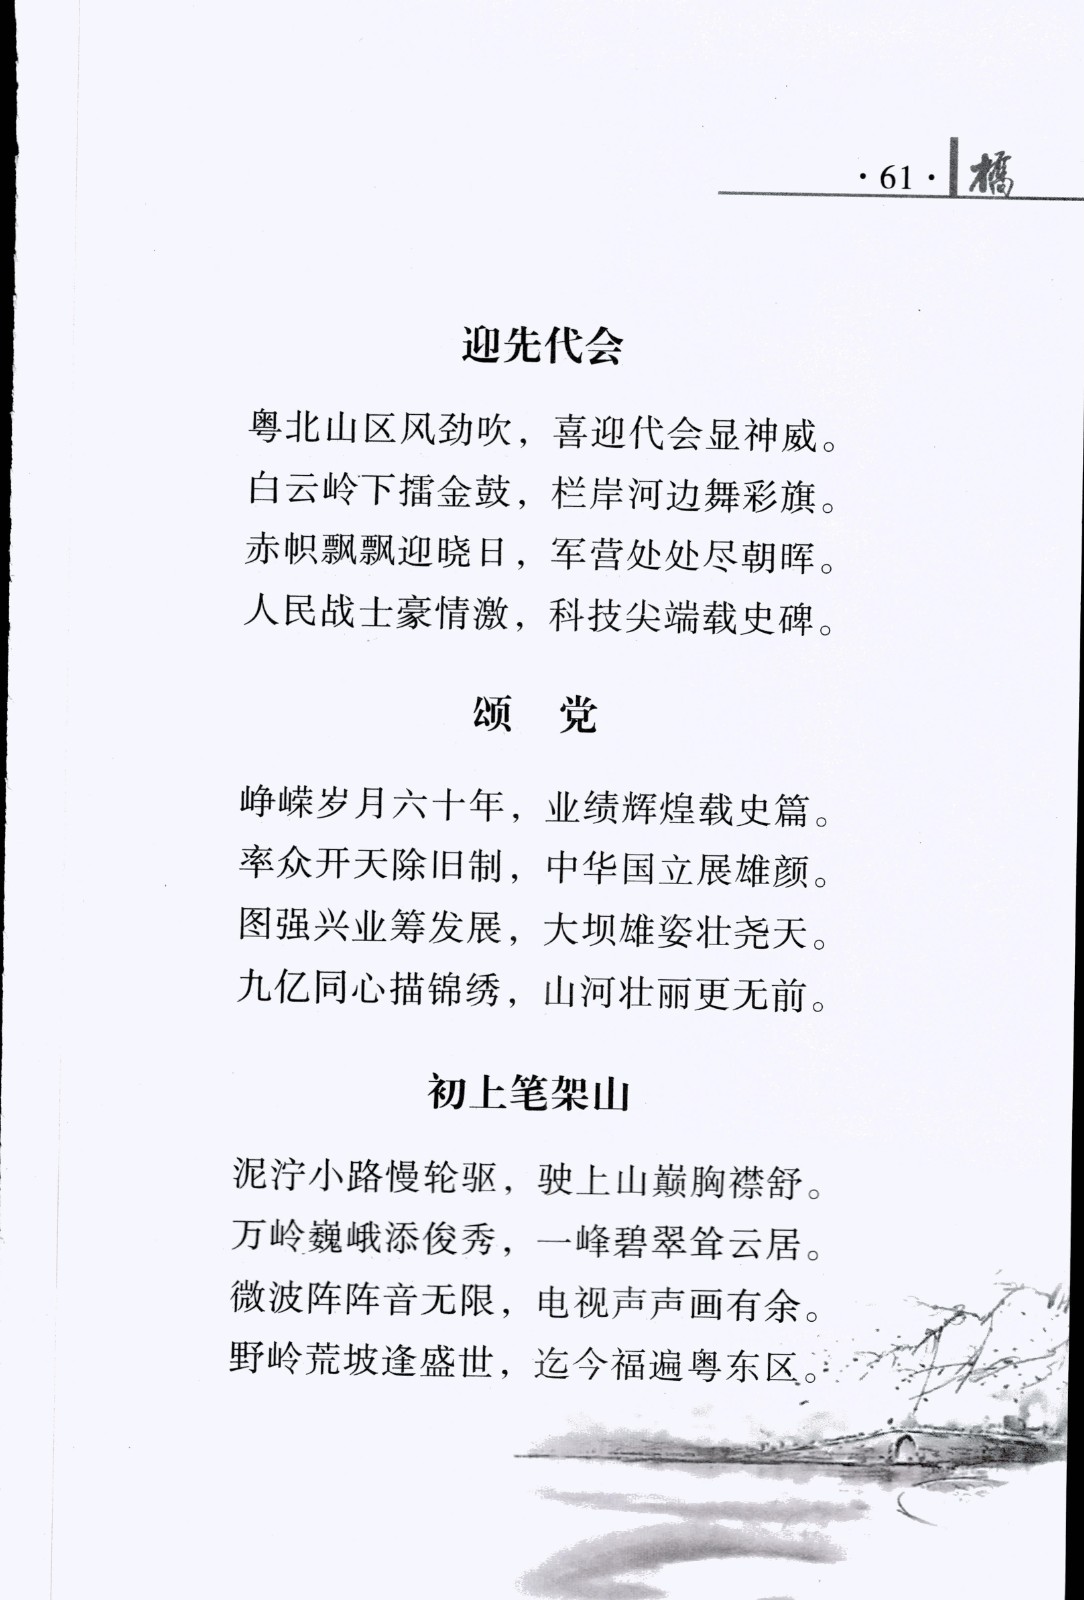 ·61· 橋
迎先代会
粤北山区风劲吹，喜迎代会显神威。
白云岭下擂金鼓，栏岸河边舞彩旗。
赤帜飘飘迎晓日，军营处处尽朝晖。
人民战士豪情激，科技尖端载史碑。
颂 党
峥嵘岁月六十年，业绩辉煌载史篇。
率众开天除旧制，中华国立展雄颜。
图强兴业筹发展，大坝雄姿壮尧天。
九亿同心描锦绣，山河壮丽更无前。
初上笔架山
泥泞小路慢轮驱，驶上山巅胸襟舒。
万岭巍峨添俊秀，一峰碧翠耸云居。
微波阵阵音无限，电视声声画有余。
野岭荒坡逢盛世，迄今福遍粤东区。